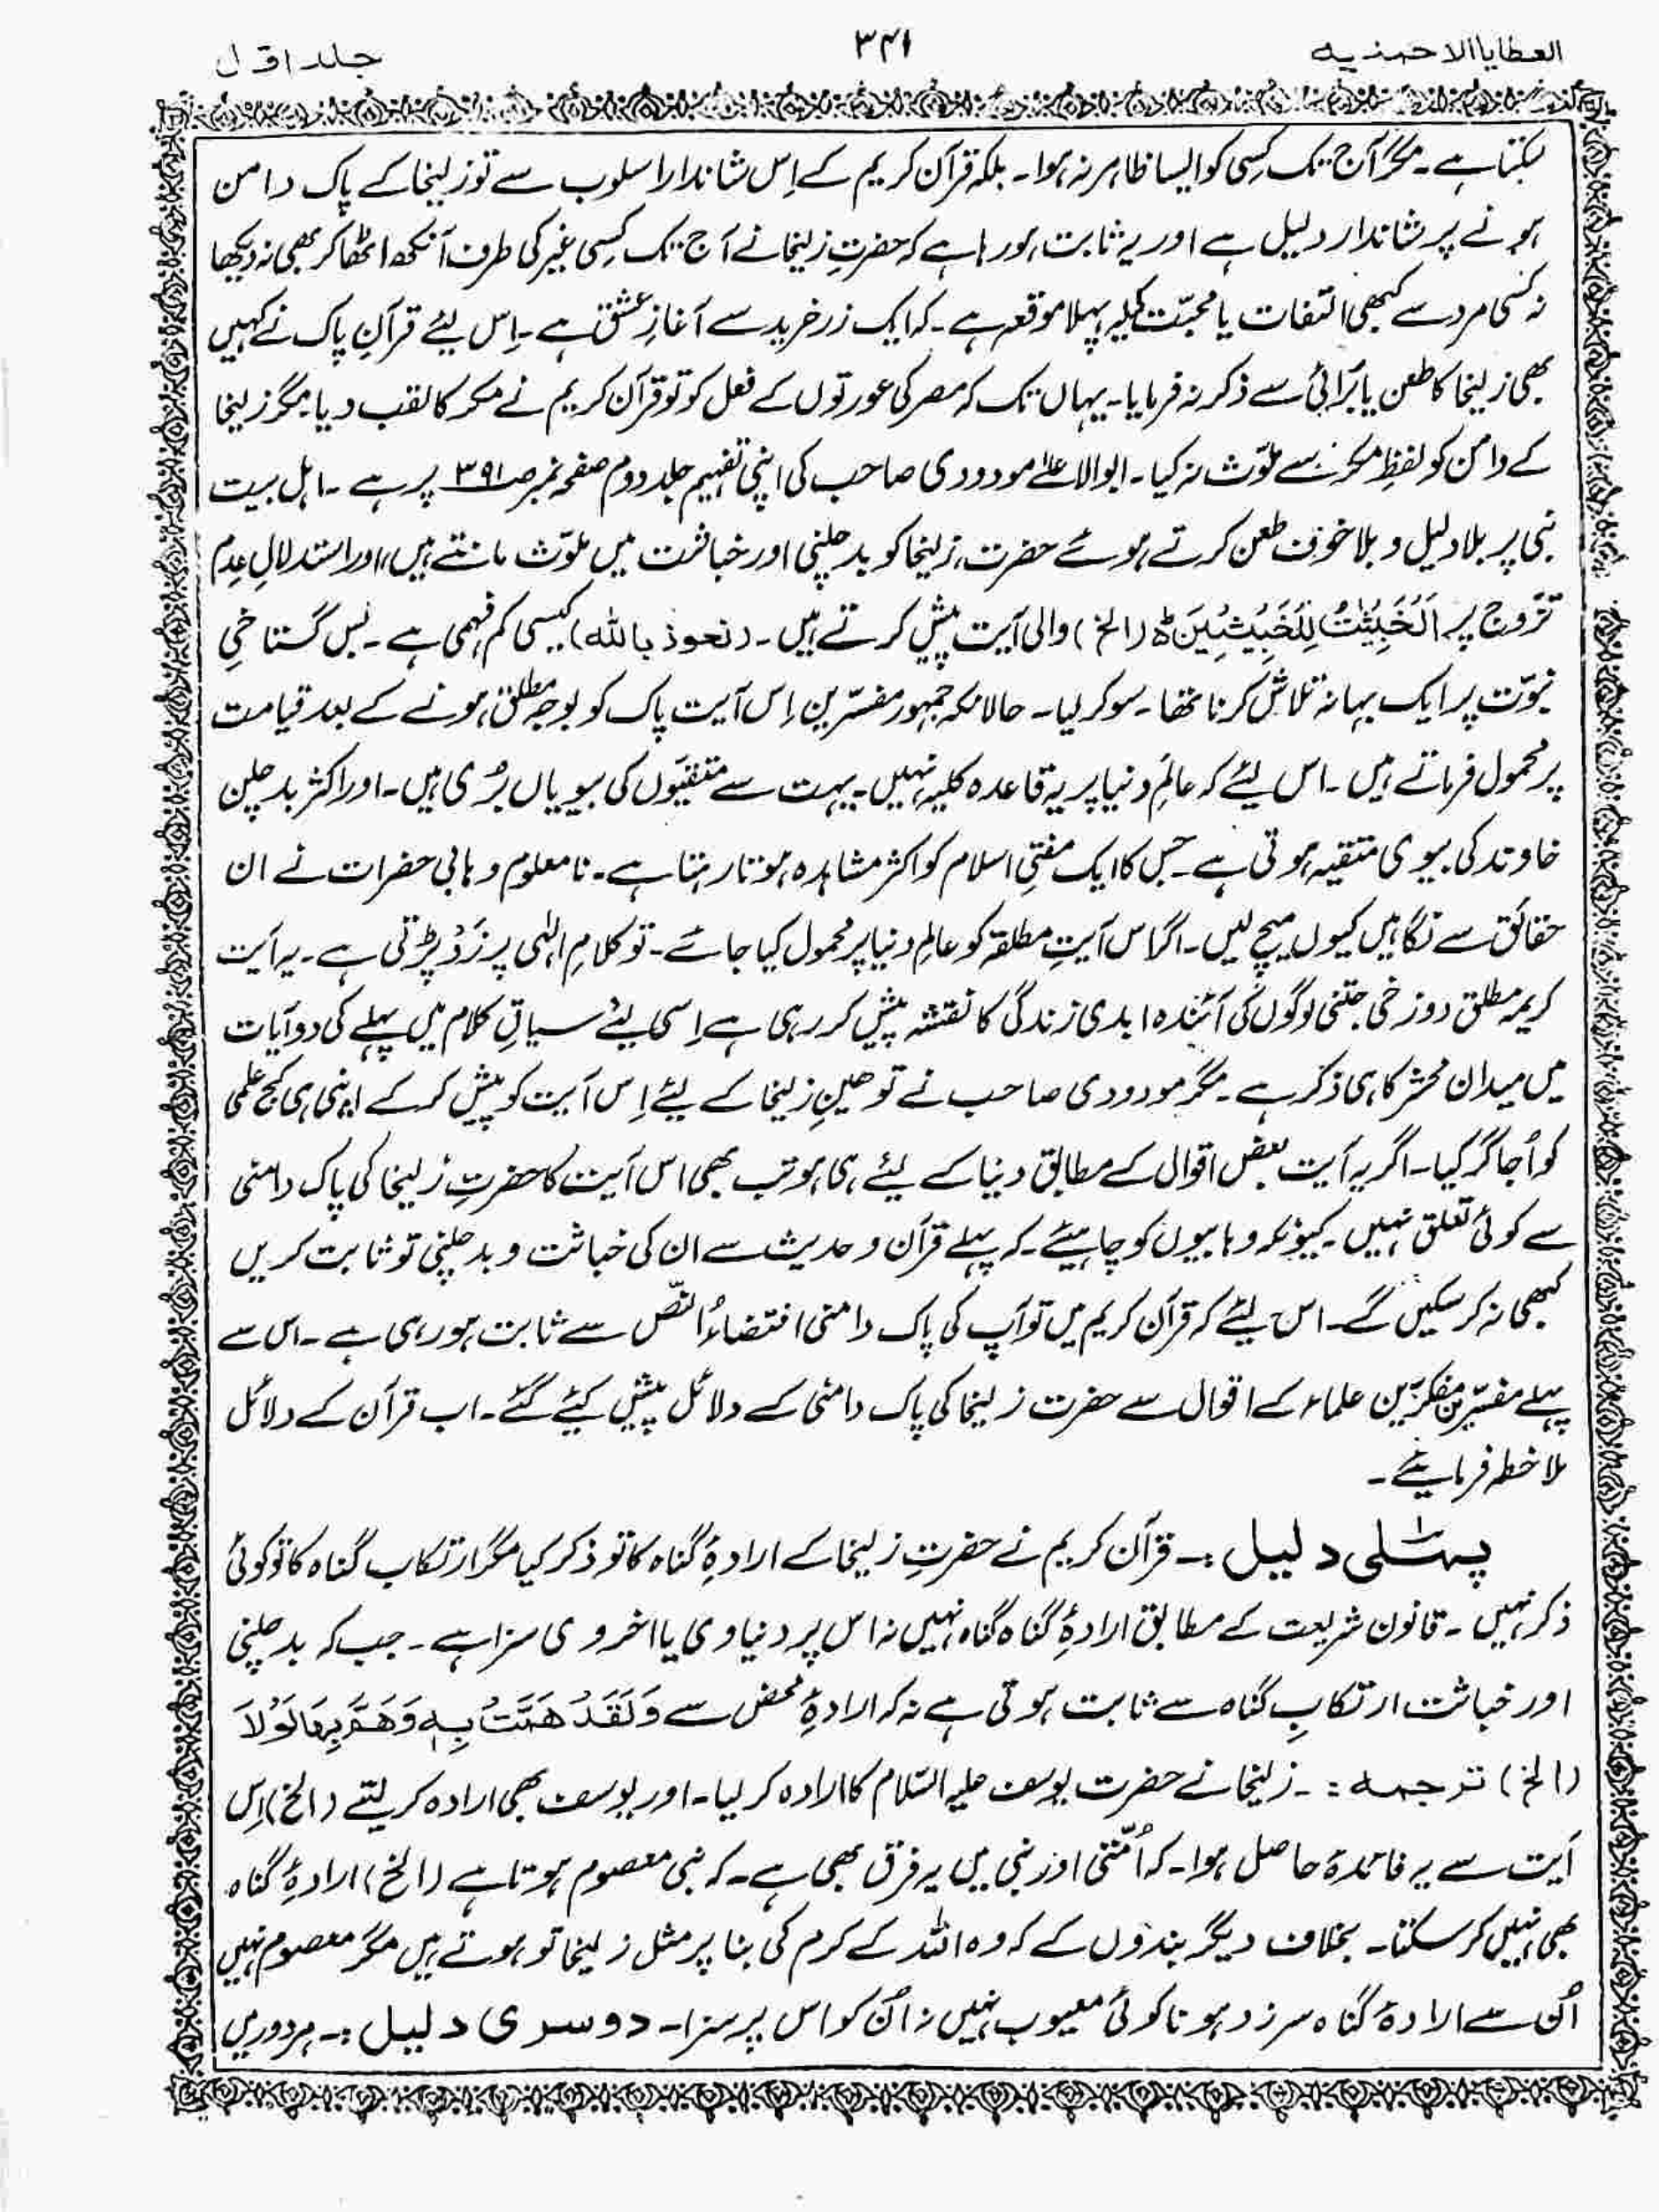 العطایا الاحمدیہ
۳۴۱
جلد اوّل
سکتا ہے۔ مگر آج تک کسی کو ایسا ظاہر نہ ہوا۔ بلکہ قرآن کریم کے اِس شاندار اسلوب سے تو زلیخا کے پاک دامن
ہونے پر شاندار دلیل ہے اور یہ ثابت ہو رہا ہے کہ حضرتِ زلیخا نے آج تک کسی غیر کی طرف آنکھ اٹھا کر بھی نہ دیکھا
نہ کسی مرد سے کبھی التفات یا محبّت کیلیہ پہلا موقعہ ہے۔ کہ ایک زر خرید سے آغازِ عشق ہے۔ اِس لیئے قرآنِ پاک نے کہیں
بھی زلیخا کا طعن یا بُرائی سے ذکر نہ فرمایا۔ یہاں تک کہ مصر کی عورتوں کے فعل کو تو قرآن کریم نے مکر کا لقب دیا مگر زلیخا
کے دامن کو لفظِ مکر سے ملوّث نہ کیا۔ ابوالاعلےٰ مودودی صاحب کی اپنی تفہیم جلد دوم صفحہ نمبر صـ ۳۹۱ پر ہے۔ اہل بیت
نبی پر بلا دلیل و بلا خوف طعن کرتے ہوئے حضرت زلیخا کو بد چلنی اور خباثت میں ملوّث مانتے ہیں، اور استدلالِ عدِم
تزوج پر اَلْخَبِیْثٰتُ لِلْخَبِیْثِیْنَ ۵ (الخ) والی آیت پیش کرتے ہیں۔ (نعوذ باللہ) کیسی کم فہمی ہے۔ بس گستاخیِ
نبوّت پر ایک بہانہ تلاش کرنا تھا۔ سو کر لیا۔ حالانکہ جمہور مفسّرین اِس آیت پاک کو بوجہ مطلق ہونے کے بعد قیامت
پر محمول فرماتے ہیں۔ اس لیئے کہ عالَمِ دنیا پر یہ قاعدہ کلیہ نہیں۔ بہت سے متقیّوں کی بیویاں بُری ہیں۔ اور اکثر بد چلن
خاوند کی بیوی متقیہ ہوتی ہے۔ جس کا ایک مفتیِ اسلام کو اکثر مشاہدہ ہوتا رہتا ہے۔ نا معلوم وہابی حضرات نے ان
حقائق سے نگاہیں کیوں میچ لیں۔ اگر اس آیتِ مطلقہ کو عالمِ دنیا پر محمول کیا جائے۔ تو کلامِ الٰہی پر زَدْ پڑتی ہے۔ یہ آیت
کریمہ مطلق دوزخی جنتی لوگوں کی آئندہ ابدی زندگی کا نقشہ پیش کر رہی ہے اِسی لیئے سیاقِ کلام میں پہلے کی دو آیات
میں میدان محشر کا ہی ذکر ہے۔ مگر مودودی صاحب نے توہینِ زلیخا کے لیئے اِس آیت کو پیش کر کے اپنی ہی کج علمی
کو اُجاگر کیا۔ اگر یہ آیت بعض اقوال کے مطابق دنیا کے لیئے ہی ہو تب بھی اس آیت کا حضرتِ زلیخا کی پاک دامنی
سے کوئی تعلق نہیں۔ کیونکہ وہابیوں کو چاہیئے۔ کہ پہلے قرآن و حدیث سے ان کی خباثت و بد چلنی تو ثابت کریں
کبھی نہ کر سکیں گے۔ اس لیئے کہ قرآن کریم میں تو آپ کی پاک دامنی اقتضاءُ النّص سے ثابت ہو رہی ہے۔ اس سے
پہلے مفسّرین مفکرّین علماء کے اقوال سے حضرت زلیخا کی پاک دامنی کے دلائل پیش کیئے گئے۔ اب قرآن کے دلائل
ملاخطہ فرمایئے۔
پہلی دلیل :۔ قرآن کریم نے حضرتِ زلیخا کے ارادۂِ گناہ کا تو ذکر کیا مگر ارتکاب گناہ کا تو کوئی
ذکر نہیں۔ قانون شریعت کے مطابق ارادۂِ گناہ گناہ نہیں نہ اس پر دنیاوی یا اخروی سزا ہے۔ جب کہ بد چلنی
اور خباثت ارتکابِ گناہ سے ثابت ہوتی ہے نہ کہ ارادۂِ محض سے وَلَقَدْ هَمَّتْ بِهٖ وَهَمَّ بِهَا لَوْلَا
(الخ) ترجمہ :۔ زلیخا نے حضرت یوسف علیہ السّلام کا ارادہ کر لیا۔ اور یوسف بھی ارادہ کر لیتے (الخ) اِس
آیت سے یہ فائدہ حاصل ہوا۔ کہ اُمّتی اور نبی میں یہ فرق بھی ہے۔ کہ نبی معصوم ہوتا ہے (الخ) ارادۂِ گناہ
بھی نہیں کر سکتا۔ بخلاف دیگر بندوں کے کہ وہ اللہ کے کرم کی بنا پر مثل زلیخا تو ہوتے ہیں مگر معصوم نہیں
اُن سے ارادۂ گناہ سرزد ہونا کوئی معیوب نہیں نہ اُن کو اس پر سزا۔ دوسری دلیل :۔ ہر دور میں